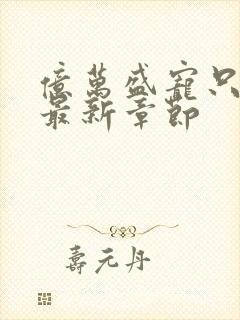 億萬盛寵只
最新章節
壽元丹